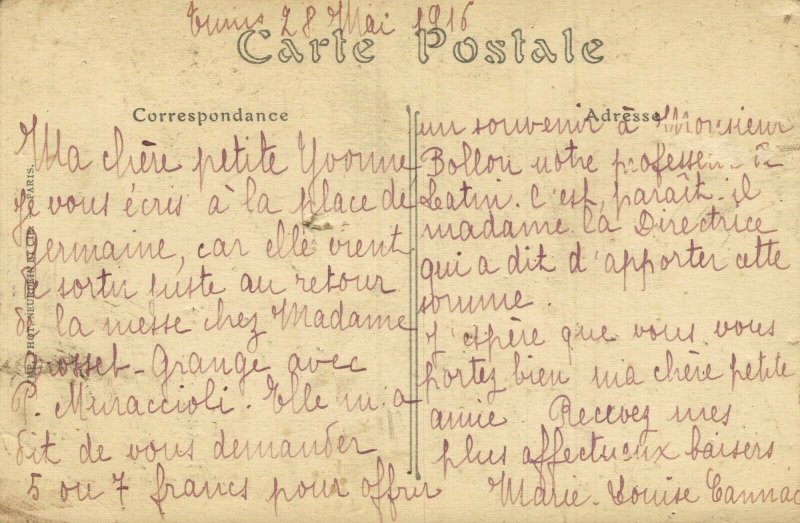 Tunis 28 Mai 1916
Carte Postale
Correspondance
Ma chère petite Yvonne
Je vous écris à la place de
Germaine, car elle vient
de sortir juste au retour
de la messe chez Madame
Grosset-Grange avec
P. Muraccioli. Elle m'a
dit de vous demander
5 ou 7 francs pour offrir
Adresse
un souvenir à Monsieur
Bollon notre professeur de
Latin. C'est, paraît-il
madame la Directrice
qui a dit d'apporter cette
somme.
J'espère que vous vous
portez bien ma chère petite
amie. Recevez mes
plus affectueux baisers
Marie-Louise Cannac
PHOT. NEURDEIN ET CIE PARIS.